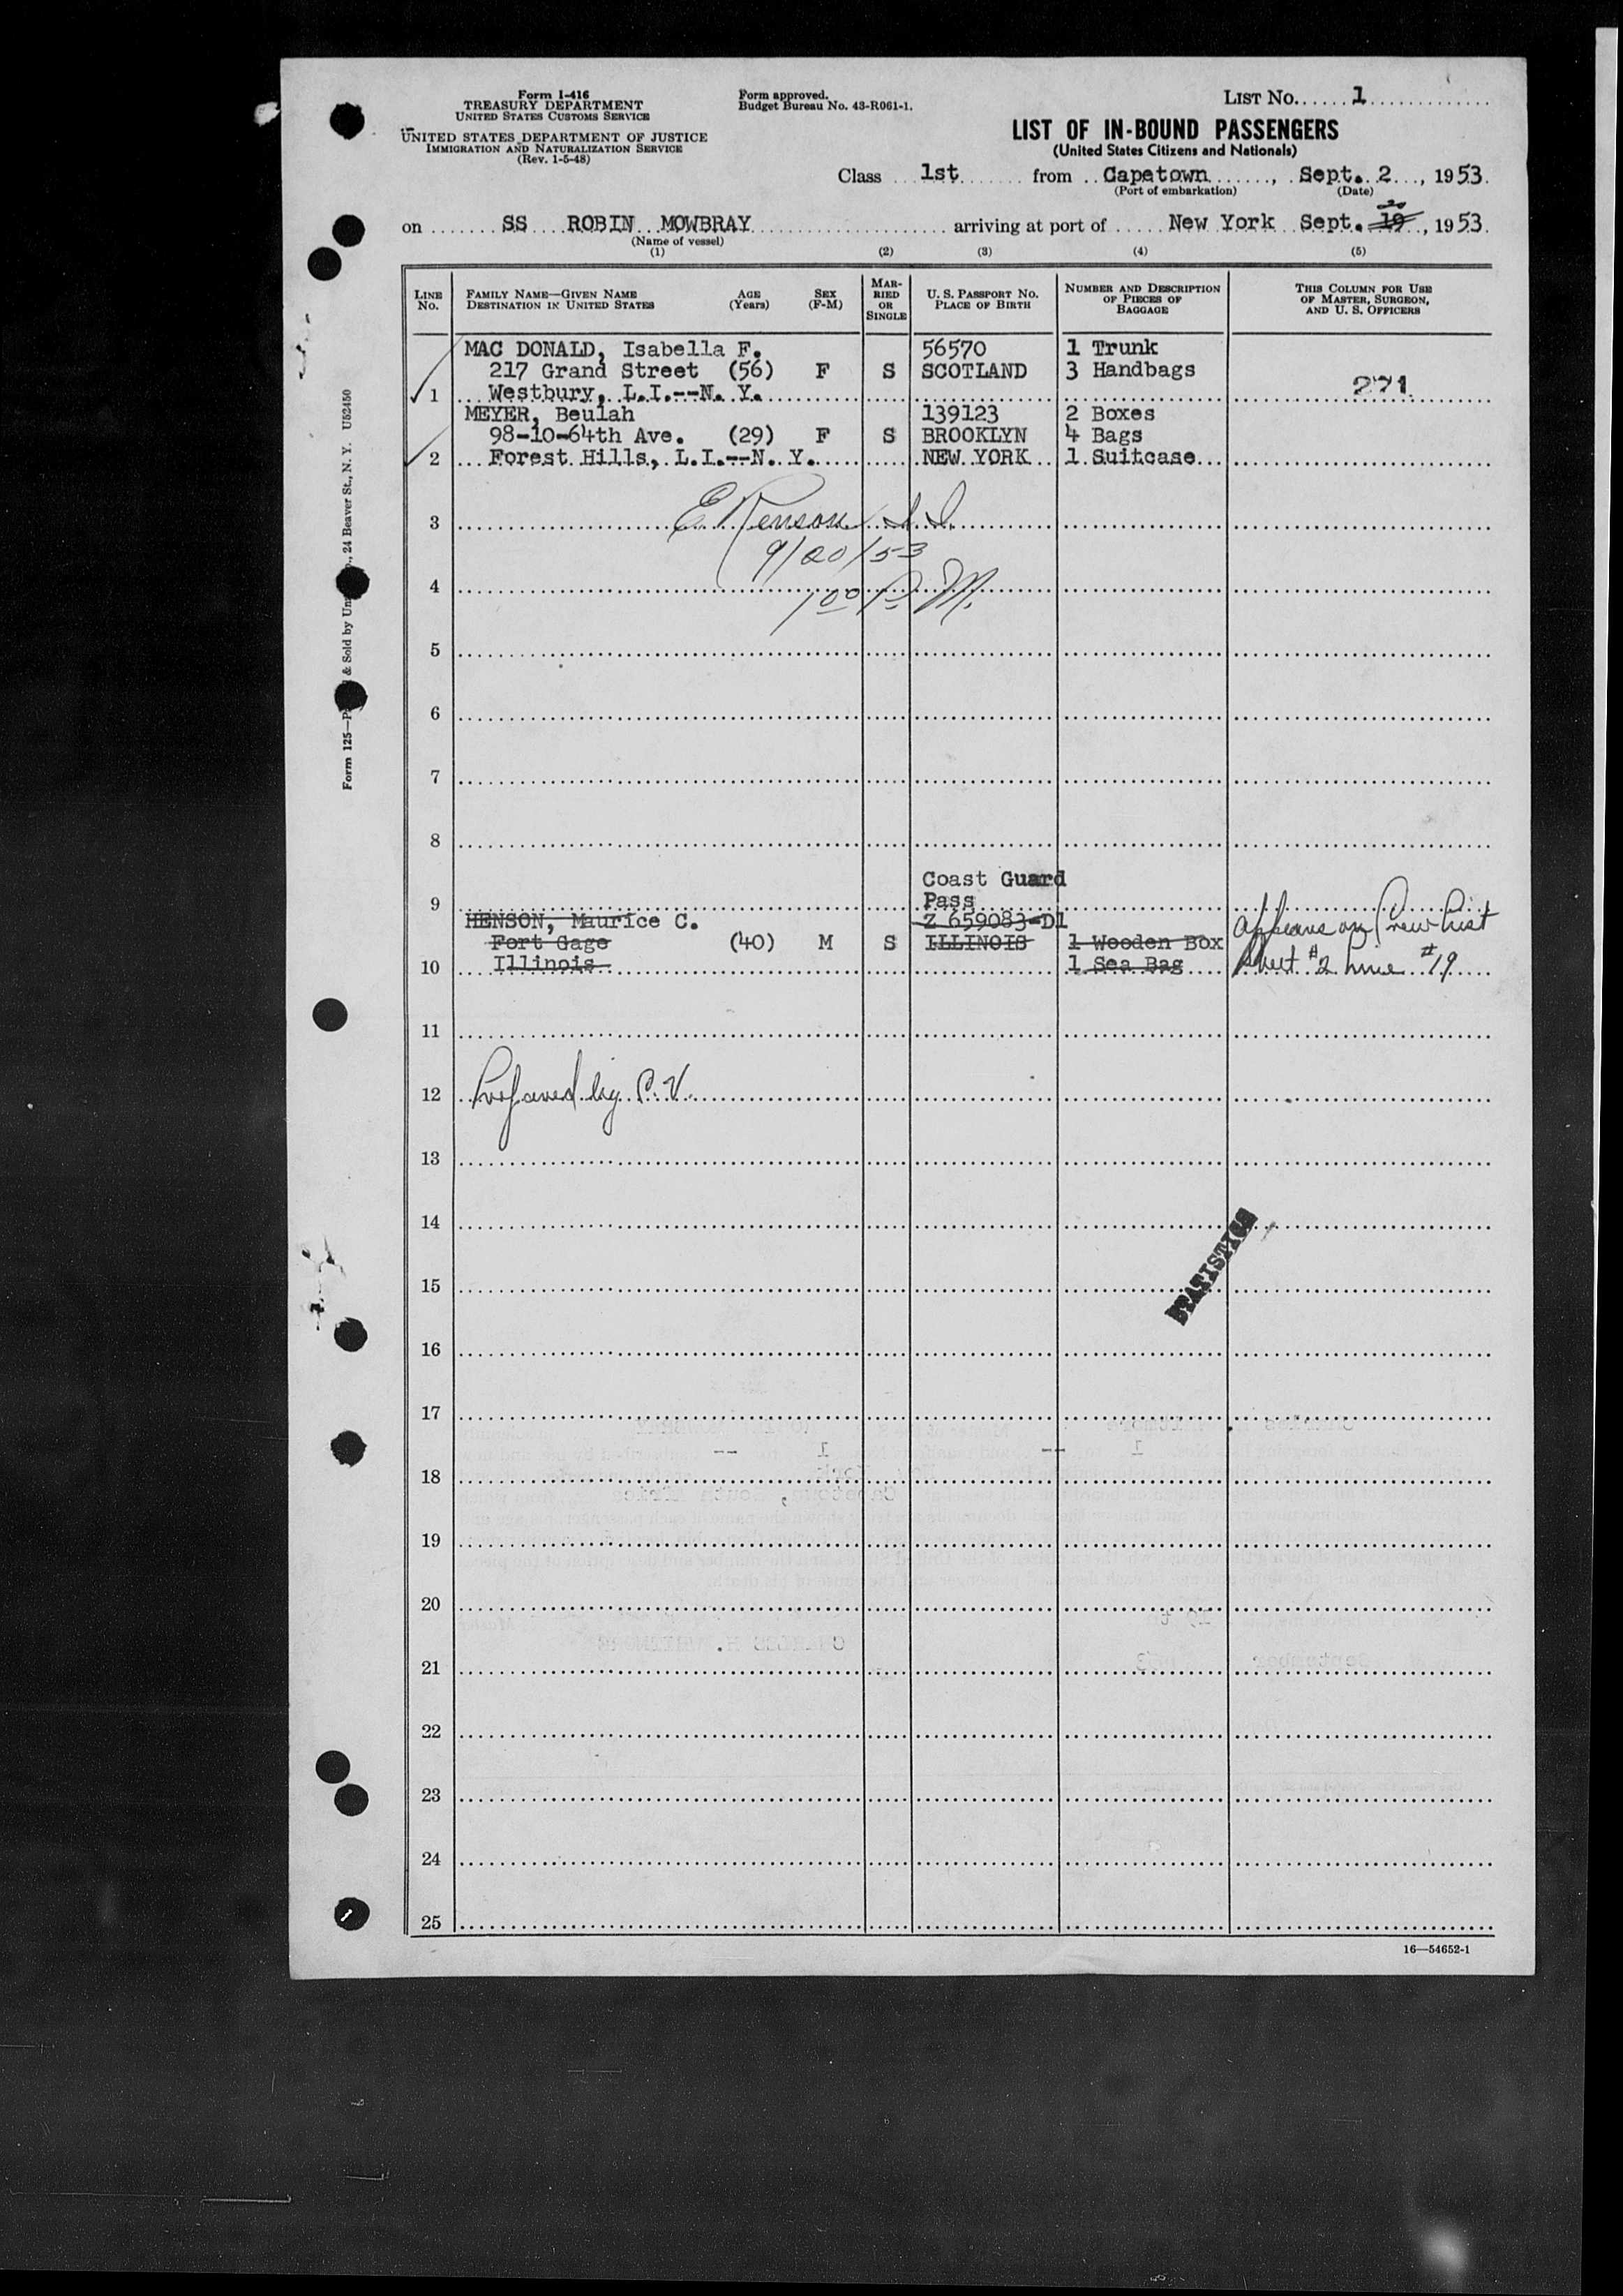 Form I-416
TREASURY DEPARTMENT
UNITED STATES CUSTOMS SERVICE
UNITED STATES DEPARTMENT OF JUSTICE
IMMIGRATION AND NATURALIZATION SERVICE
(Rev. 1-5-48)
Form approved.
Budget Bureau No. 43-R061-1.
LIST No. 1
LIST OF IN-BOUND PASSENGERS
(United States Citizens and Nationals)
Class 1st from Capetown, Sept. 2, 1953.
(Port of embarkation) (Date)
on SS ROBIN MOWBRAY arriving at port of New York Sept. 19 20, 1953.
(Name of vessel)
(1) (2) (3) (4) (5)
LINE No. FAMILY NAME—GIVEN NAME DESTINATION IN UNITED STATES AGE (Years) SEX (F-M) MARRIED OR SINGLE U. S. PASSPORT NO. PLACE OF BIRTH NUMBER AND DESCRIPTION OF PIECES OF BAGGAGE THIS COLUMN FOR USE OF MASTER, SURGEON, AND U. S. OFFICERS
MAC DONALD, Isabella F. 56570 1 Trunk
217 Grand Street (56) F S SCOTLAND 3 Handbags
1 Westbury, L.I.--N. Y. 271
MEYER, Beulah 139123 2 Boxes
98-10-64th Ave. (29) F S BROOKLYN 4 Bags
2 Forest Hills, L.I.--N. Y. NEW YORK 1 Suitcase
3 E
9/20/53
4 1 00 P M.
5
6
7
8
Coast Guard
9 Pass
HENSON, Maurice C. Z 659083-D1
Fort Gage (40) M S ILLINOIS 1 Wooden Box appears on Crew List
10 Illinois 1 Sea Bag sheet #2 line #19
11
12 by P.V.
13
14
STATISTICS
15
16
17
18
19
20
21
22
23
24
25
16—54652-1
Form 125— & Sold by 24 Beaver St., N. Y. U52450